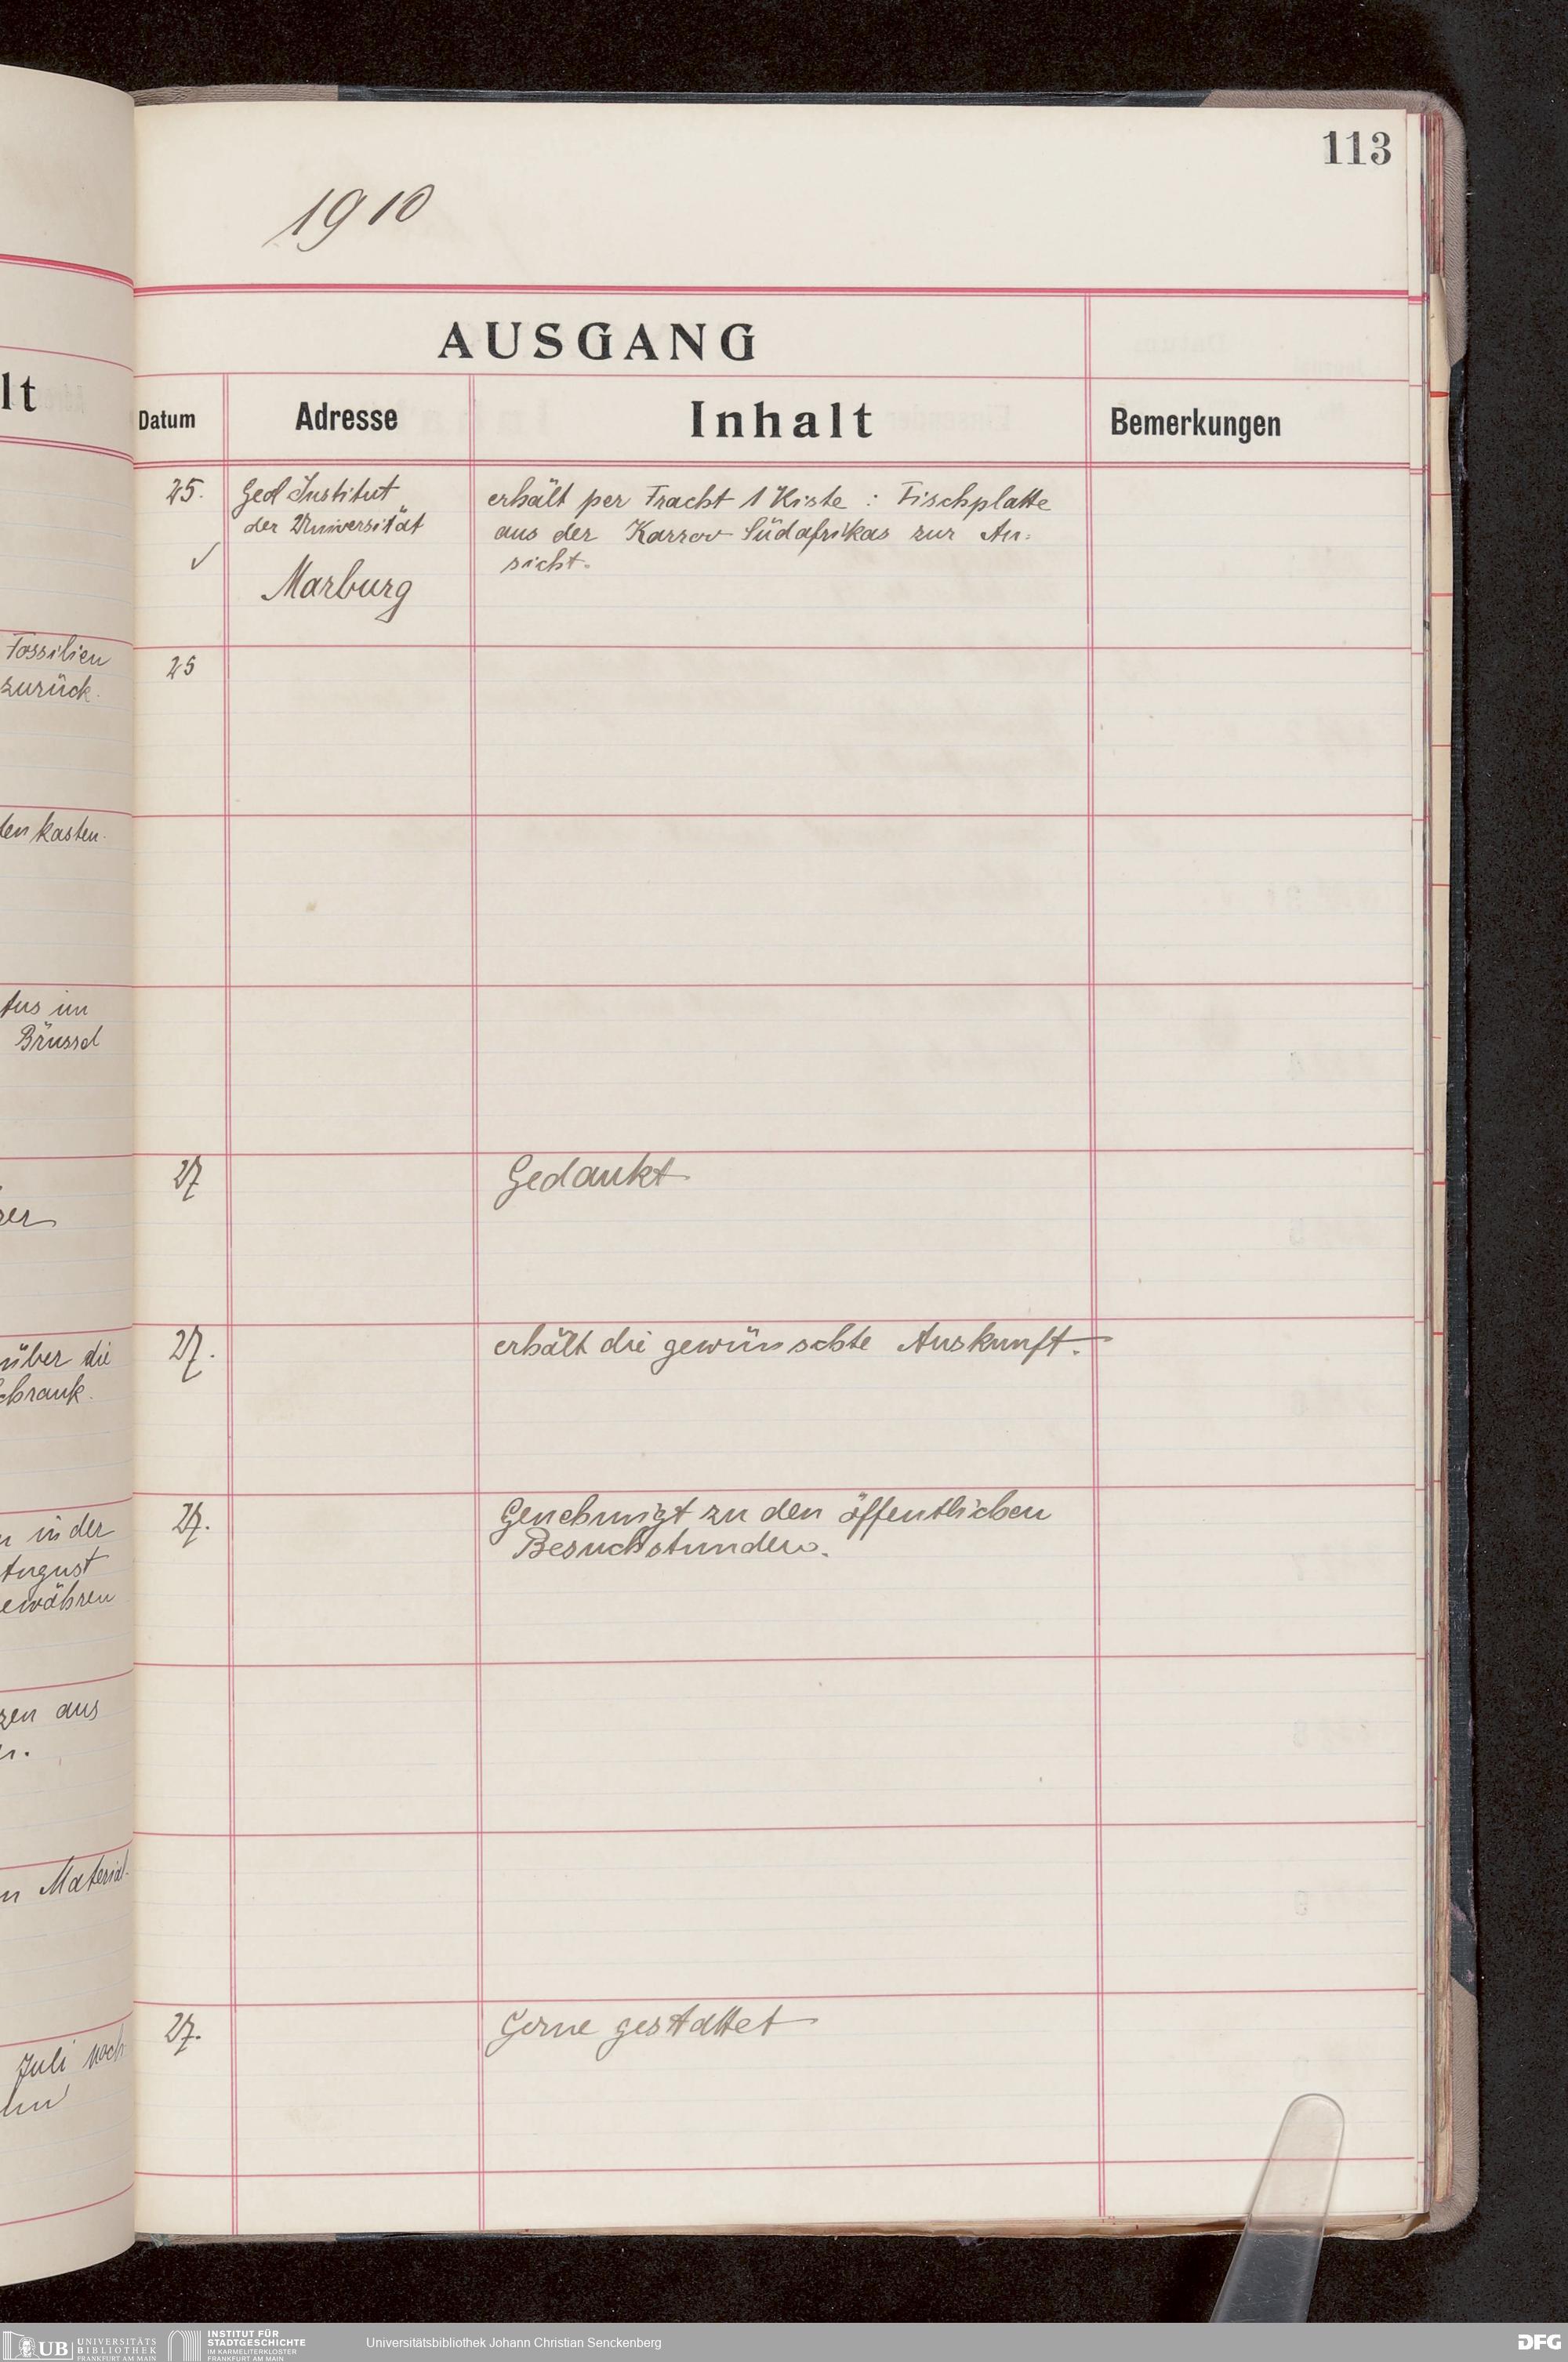 113
1910
AUSGANG
lt
Datum
Adresse
Inhalt
Bemerkungen
25.
Geol Institut
der Universität
Marburg
erhält per Fracht 1 Kiste : Fischplatte
aus der Karrov Südafrikas zur An:
sicht.
Fossilien
zurück.
25
kasten.
tus im
Brüssel
27
Gedankt
über die
schrank.
27.
erhält die gewünschte Auskunft.
in der
August
ewähren
27.
Genehmigt zu den öffentlichen
Besuchstunden.
zen aus
n Material.
Juli noch
27.
Gerne gestattet
UB
UNIVERSITÄTS
BIBLIOTHEK
FRANKFURT AM MAIN
INSTITUT FÜR
STADTGESCHICHTE
IM KARMELITERKLOSTER
FRANKFURT AM MAIN
Universitätsbibliothek Johann Christian Senckenberg
DFG